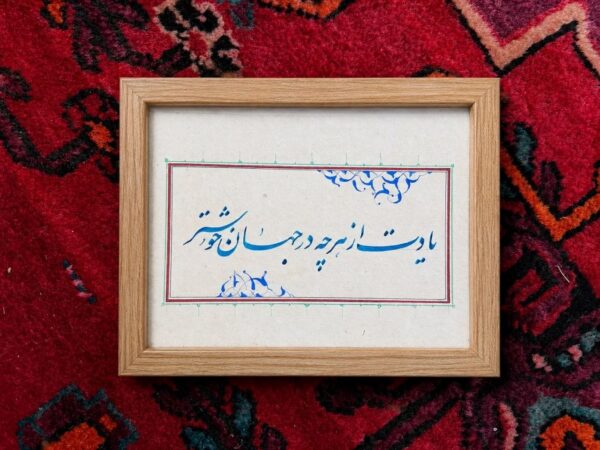 یادت از هرچه در جهان خوشتر